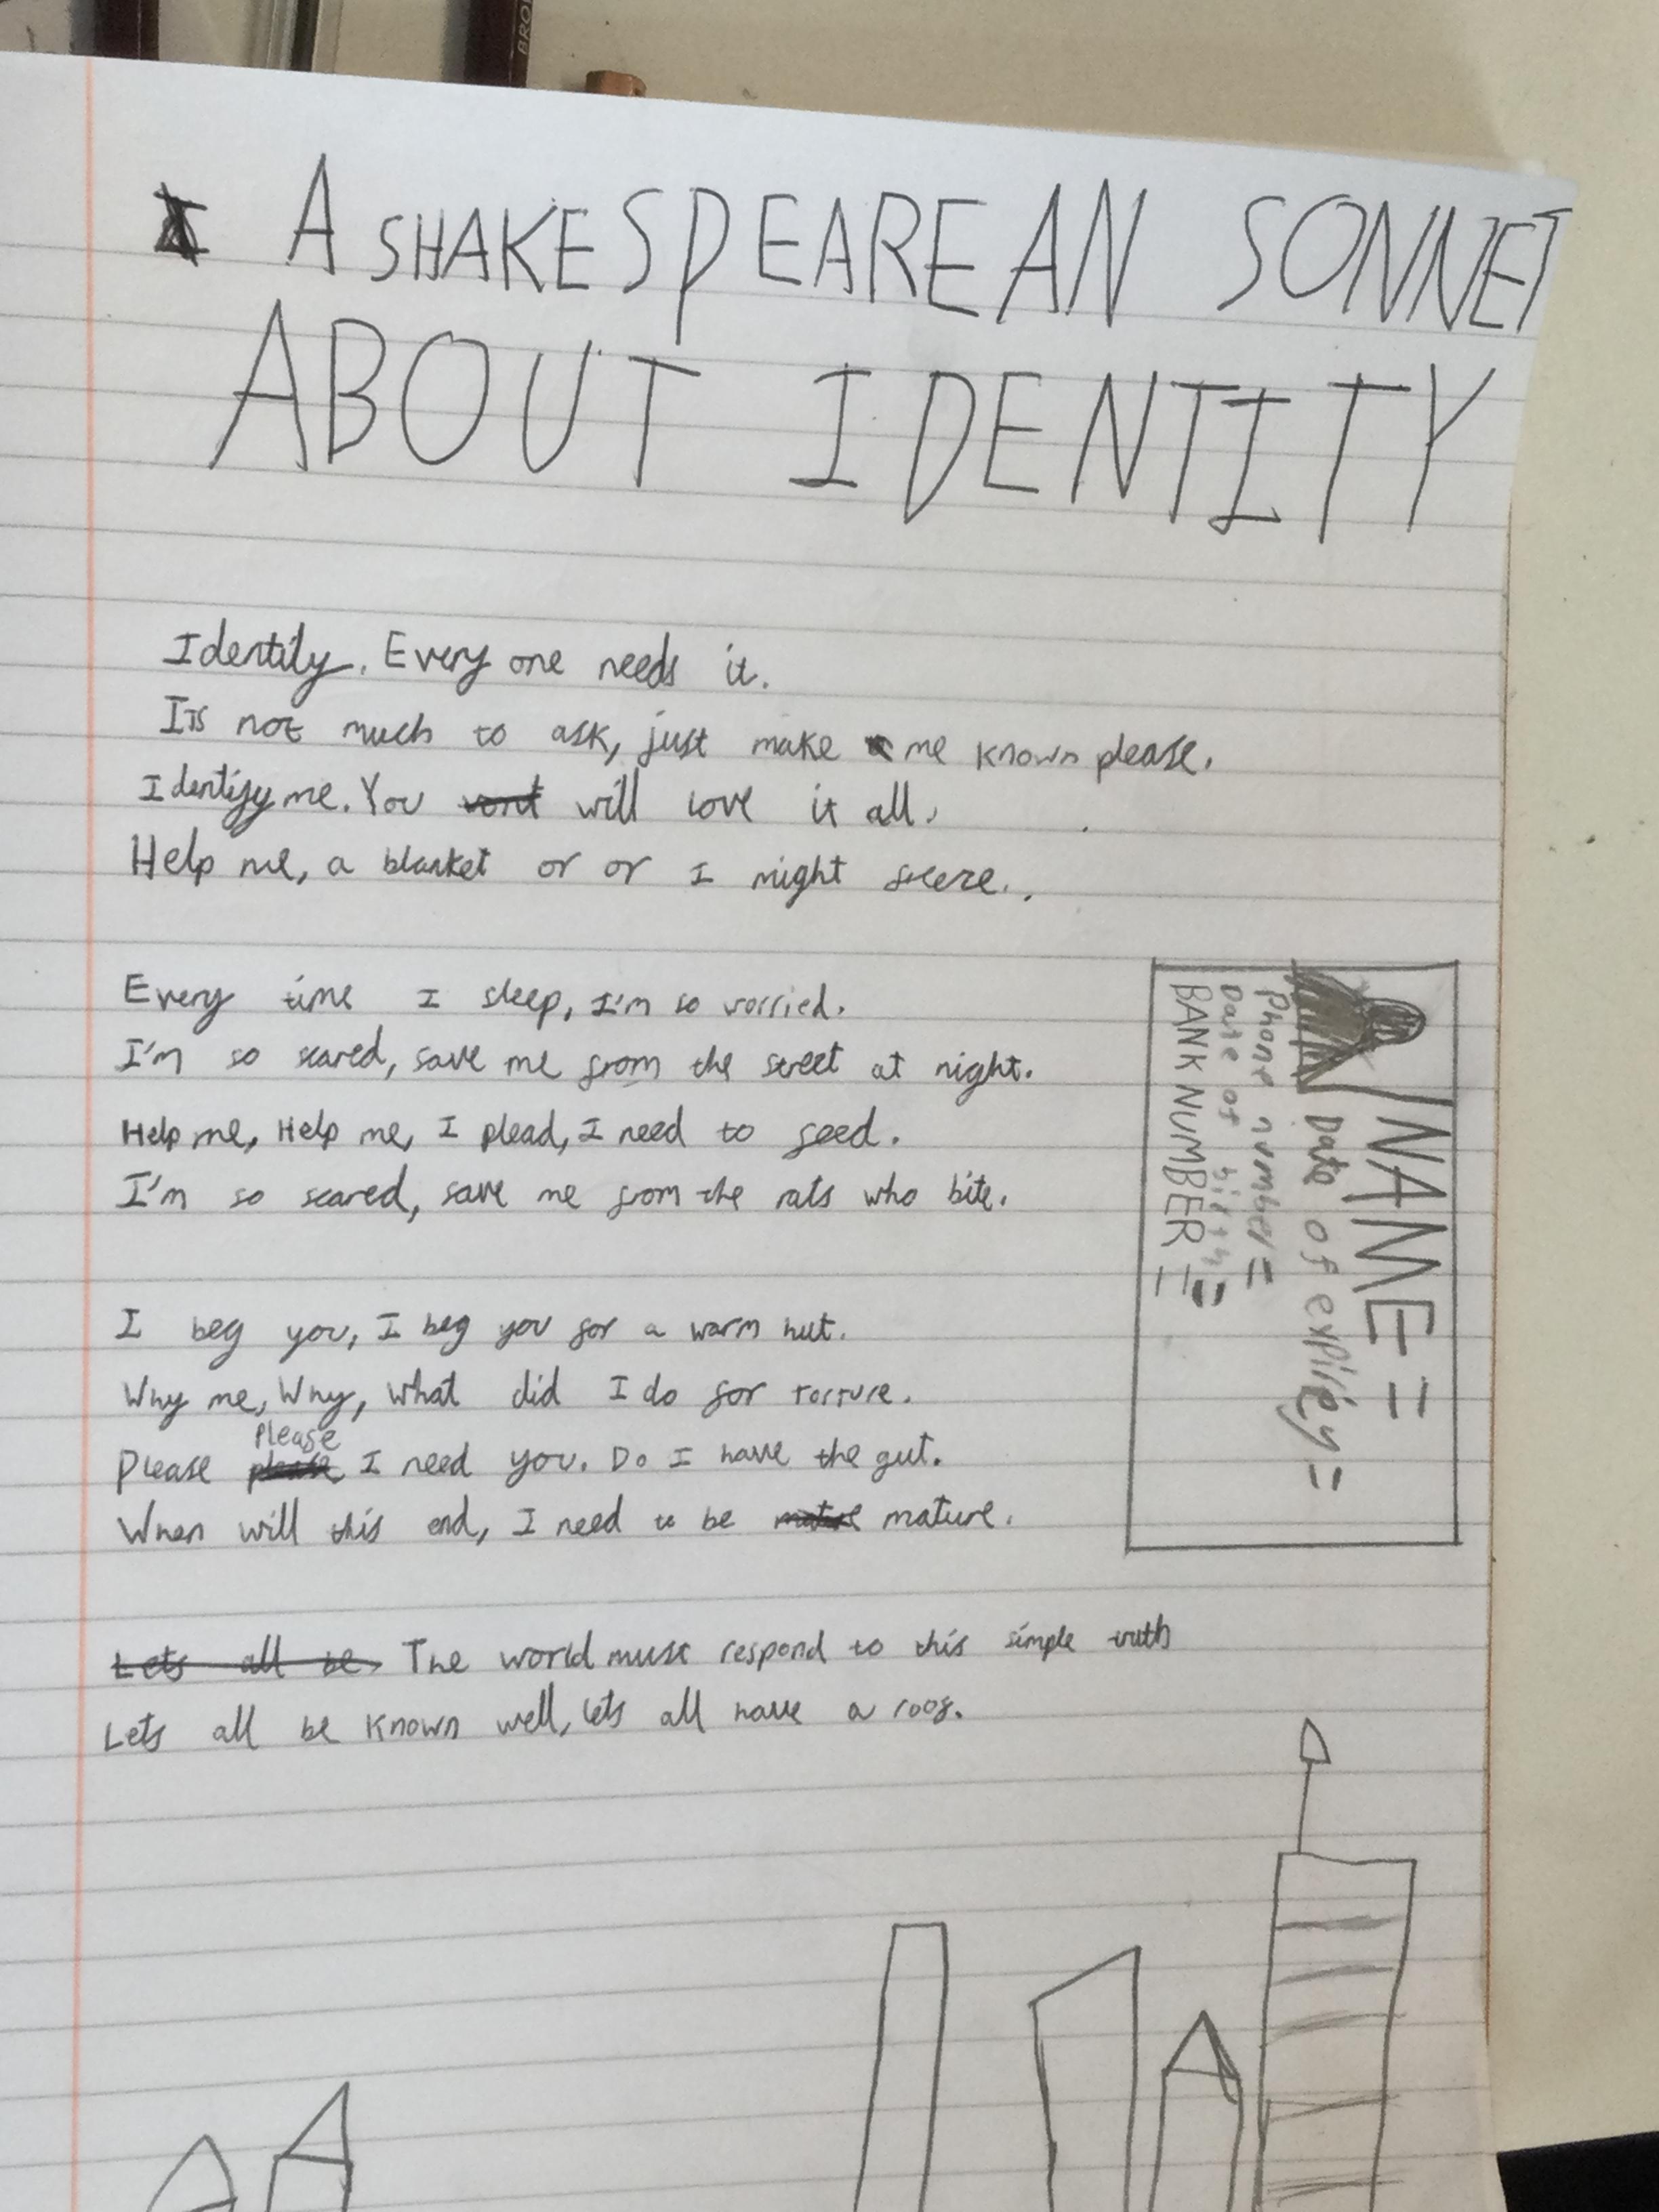 A SHAKESPEAREAN SONNET
ABOUT IDENTITY
Identity. Every one needs it.
Its not much to ask, just make me known please.
Identify me. You will love it all.
Help me, a blanket or or I might
Every time I sleep, I'm so worried.
I'm so scared, save me from the street at night.
Help me, Help me, I plead, I need to feed.
I'm so scared, save me from the rats who bite.
I beg you, I beg you for a warm hut.
Why me, Why, what did I do for torture.
Please Please I need you. Do I have the gut.
When will this end, I need to be mature.
Lets all be The world must respond to this simple truth
Lets all be known well, lets all have a roof.
NAME =
Date of expirey =
Phone number =
Date of birth =
BANK NUMBER =
BRO